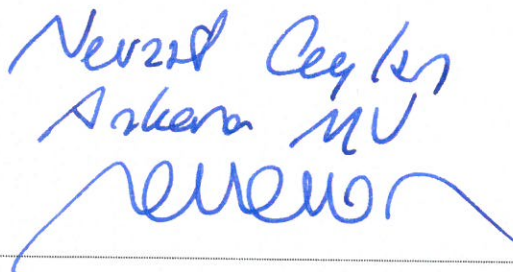 Nevzat Ceylan
Ankara MV